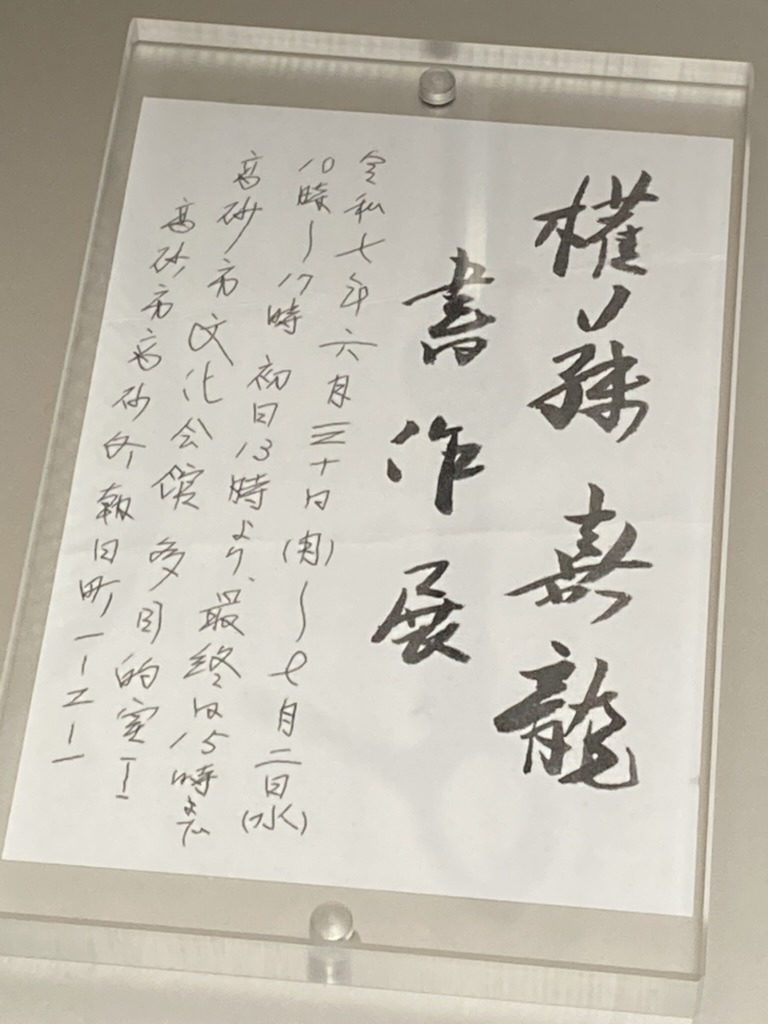 權藤嘉龍
書作展
令和七年六月三十日(月)〜七月二日(水)
10時〜17時 初日13時より、最終日15時まで
高砂市文化会館 多目的室Ⅰ
高砂市高砂町朝日町一ー二ー一